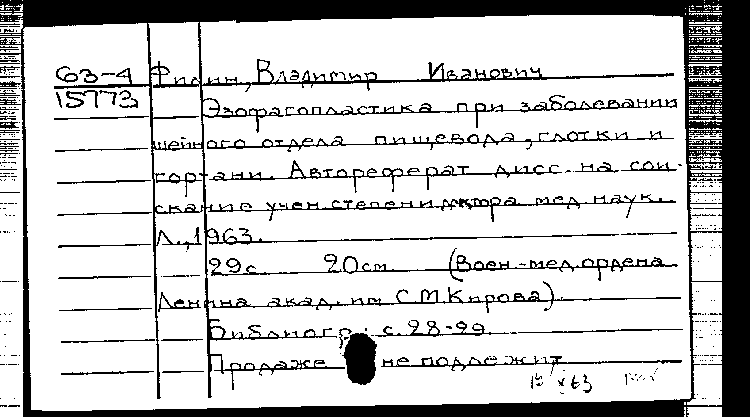 63-4 Филин, Владимир Иванович
15773 Эзофагопластика при заболевании
шейного отдела пищевода, глотки и
гортани. Автореферат дисс. на сои-
скание учен. степени доктора мед. наук.
Л., 1963.
29с. 20см. (Воен.-мед. ордена
Ленина акад. им С.М.Кирова)
Библиогр.: с. 28-29.
Продаже не подлежит
63